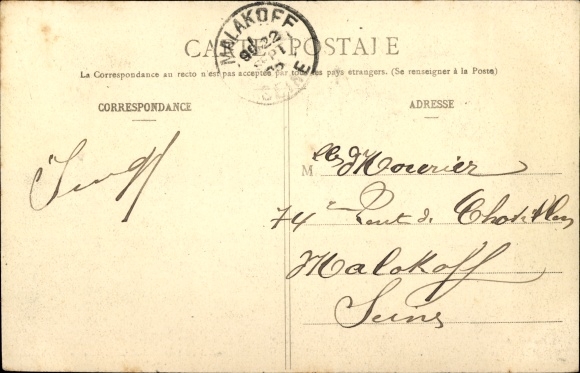 CARTE POSTALE
MALAKOFF
22
SEPT
SEINE
La Correspondance au recto n'est pas acceptée par tous les pays etrangers. (Se renseigner à la Poste)
CORRESPONDANCE
ADRESSE
Mlles Mourier
74 Rout de Chatillon
Malakoff
Seine